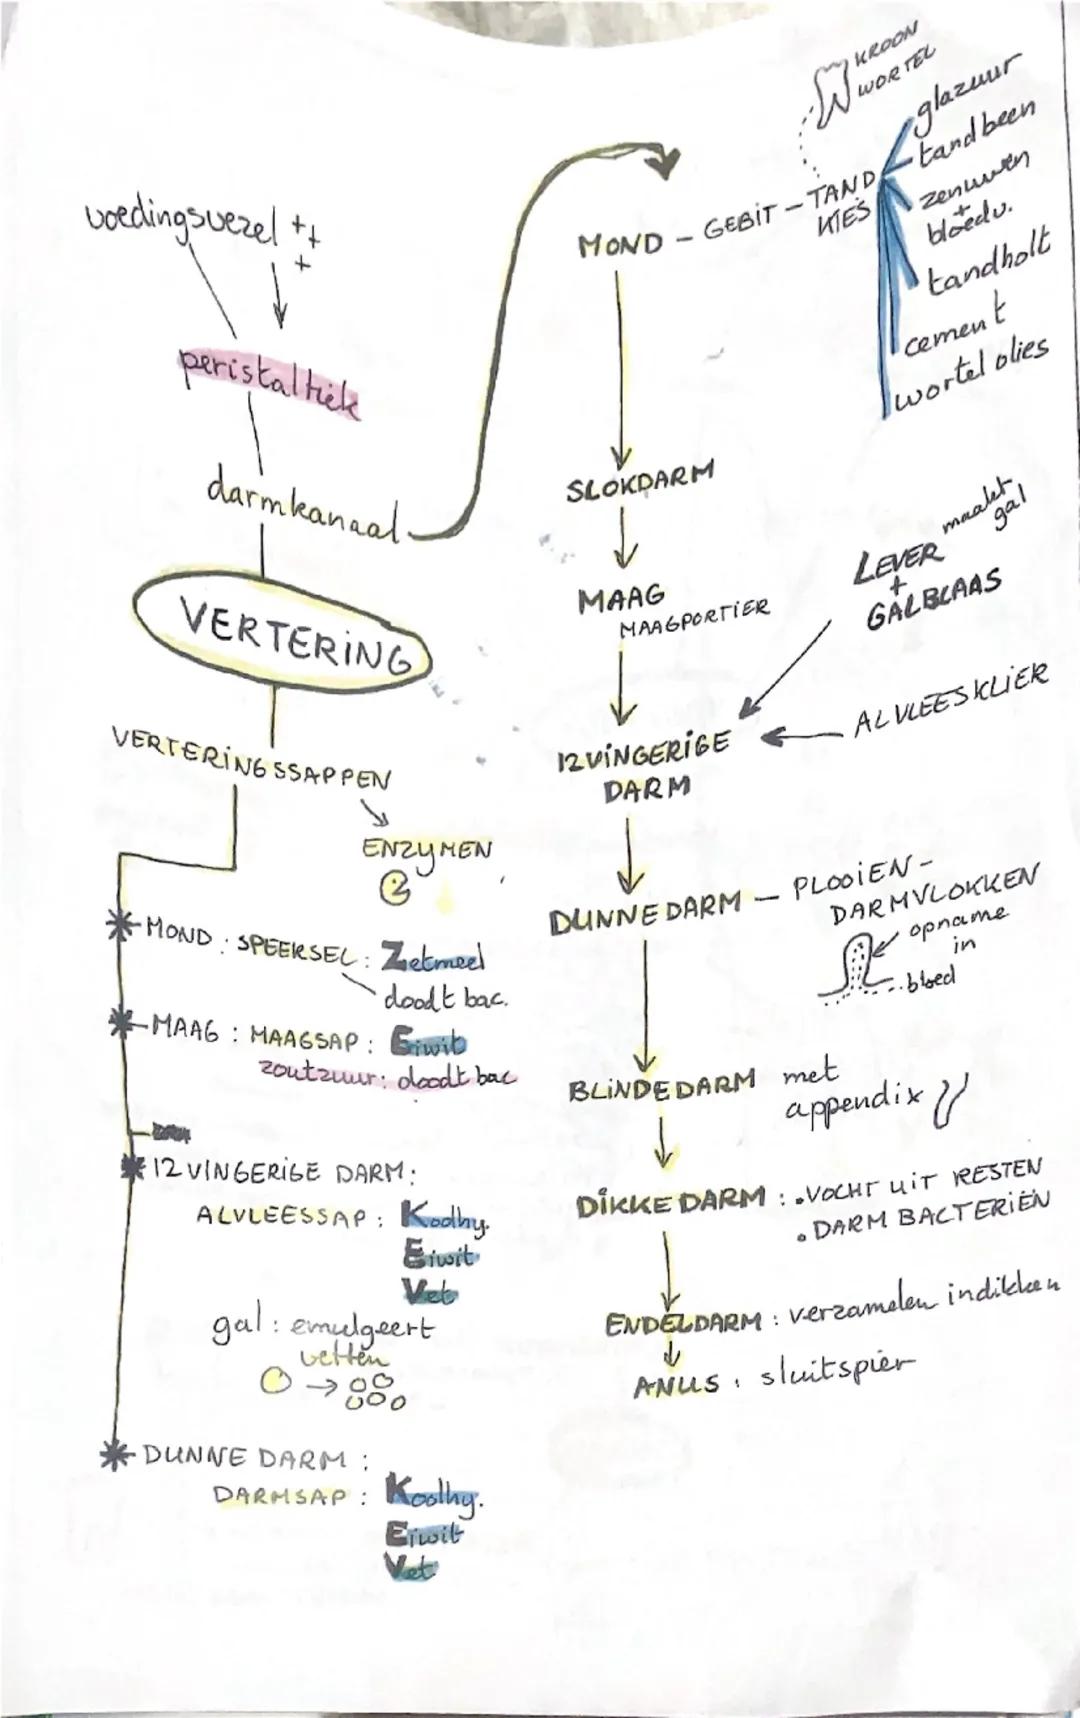 voedingsvezel ++
+
peristaltiek
darmkanaal
VERTERING
VERTERINGSSAPPEN
ENZYMEN
MOND : SPEEKSEL : Zetmeel
doodt bac.
MAAG : MAAGSAP : Eiwit
zoutzuur: doodt bac
12 VINGERIGE DARM :
ALVLEESSAP : Koolhy.
Eiwit
Vet
gal : emulgeert
vetten
DUNNE DARM :
DARMSAP : Koolhy.
Eiwit
Vet
KROON
WORTEL
MOND - GEBIT - TAND
KIES
glazuur
tandbeen
zenuwen
+
bloedv.
tandholt
cement
wortel vlies
SLOKDARM
MAAG
MAAGPORTIER
LEVER maakt
gal
+
GALBLAAS
ALVLEESKLIER
12VINGERIGE
DARM
DUNNE DARM - PLOOIEN -
DARMVLOKKEN
opname
in
bloed
BLINDE DARM met
appendix
DIKKE DARM : • VOCHT UIT RESTEN
• DARM BACTERIËN
ENDELDARM : verzamelen indikken
ANUS : sluitspier